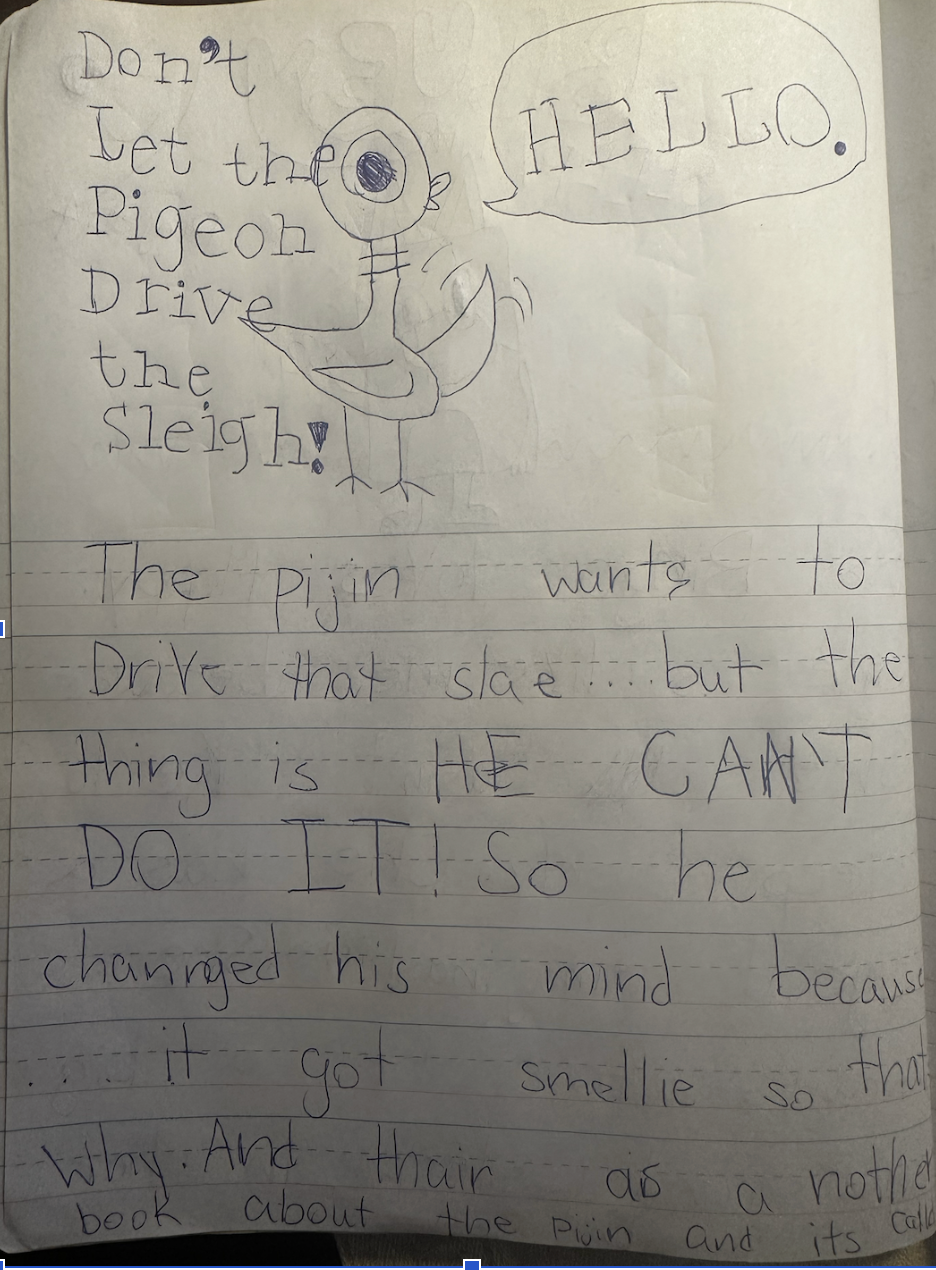 Don't
Let the
Pigeon
Drive
the
Sleigh!
HELLO.
The pijin wants to
Drive that slae....but the
thing is HE CAN'T
DO IT! So he
channged his mind because
.... it got smellie so that
Why. And thair as a nother
book about the pijin and its